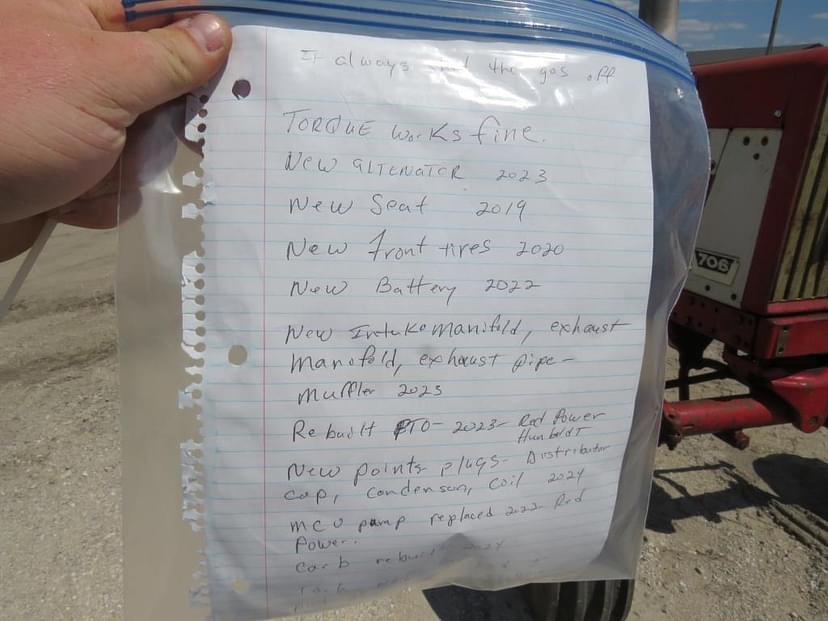 It always the gas off
TORQUE works fine.
New ALTENATOR 2023
New Seat 2019
New front tires 2020
New Battery 2022
New Intake manifold, exhaust
manofold, exhaust pipe -
muffler 2023
Rebuilt PTO - 2023 - Red Power
Humboldt
New points plugs - Distributor
cap, condenson, coil 2024
MCV pump replaced 2022 Red
Power.
carb rebuilt 2024
706